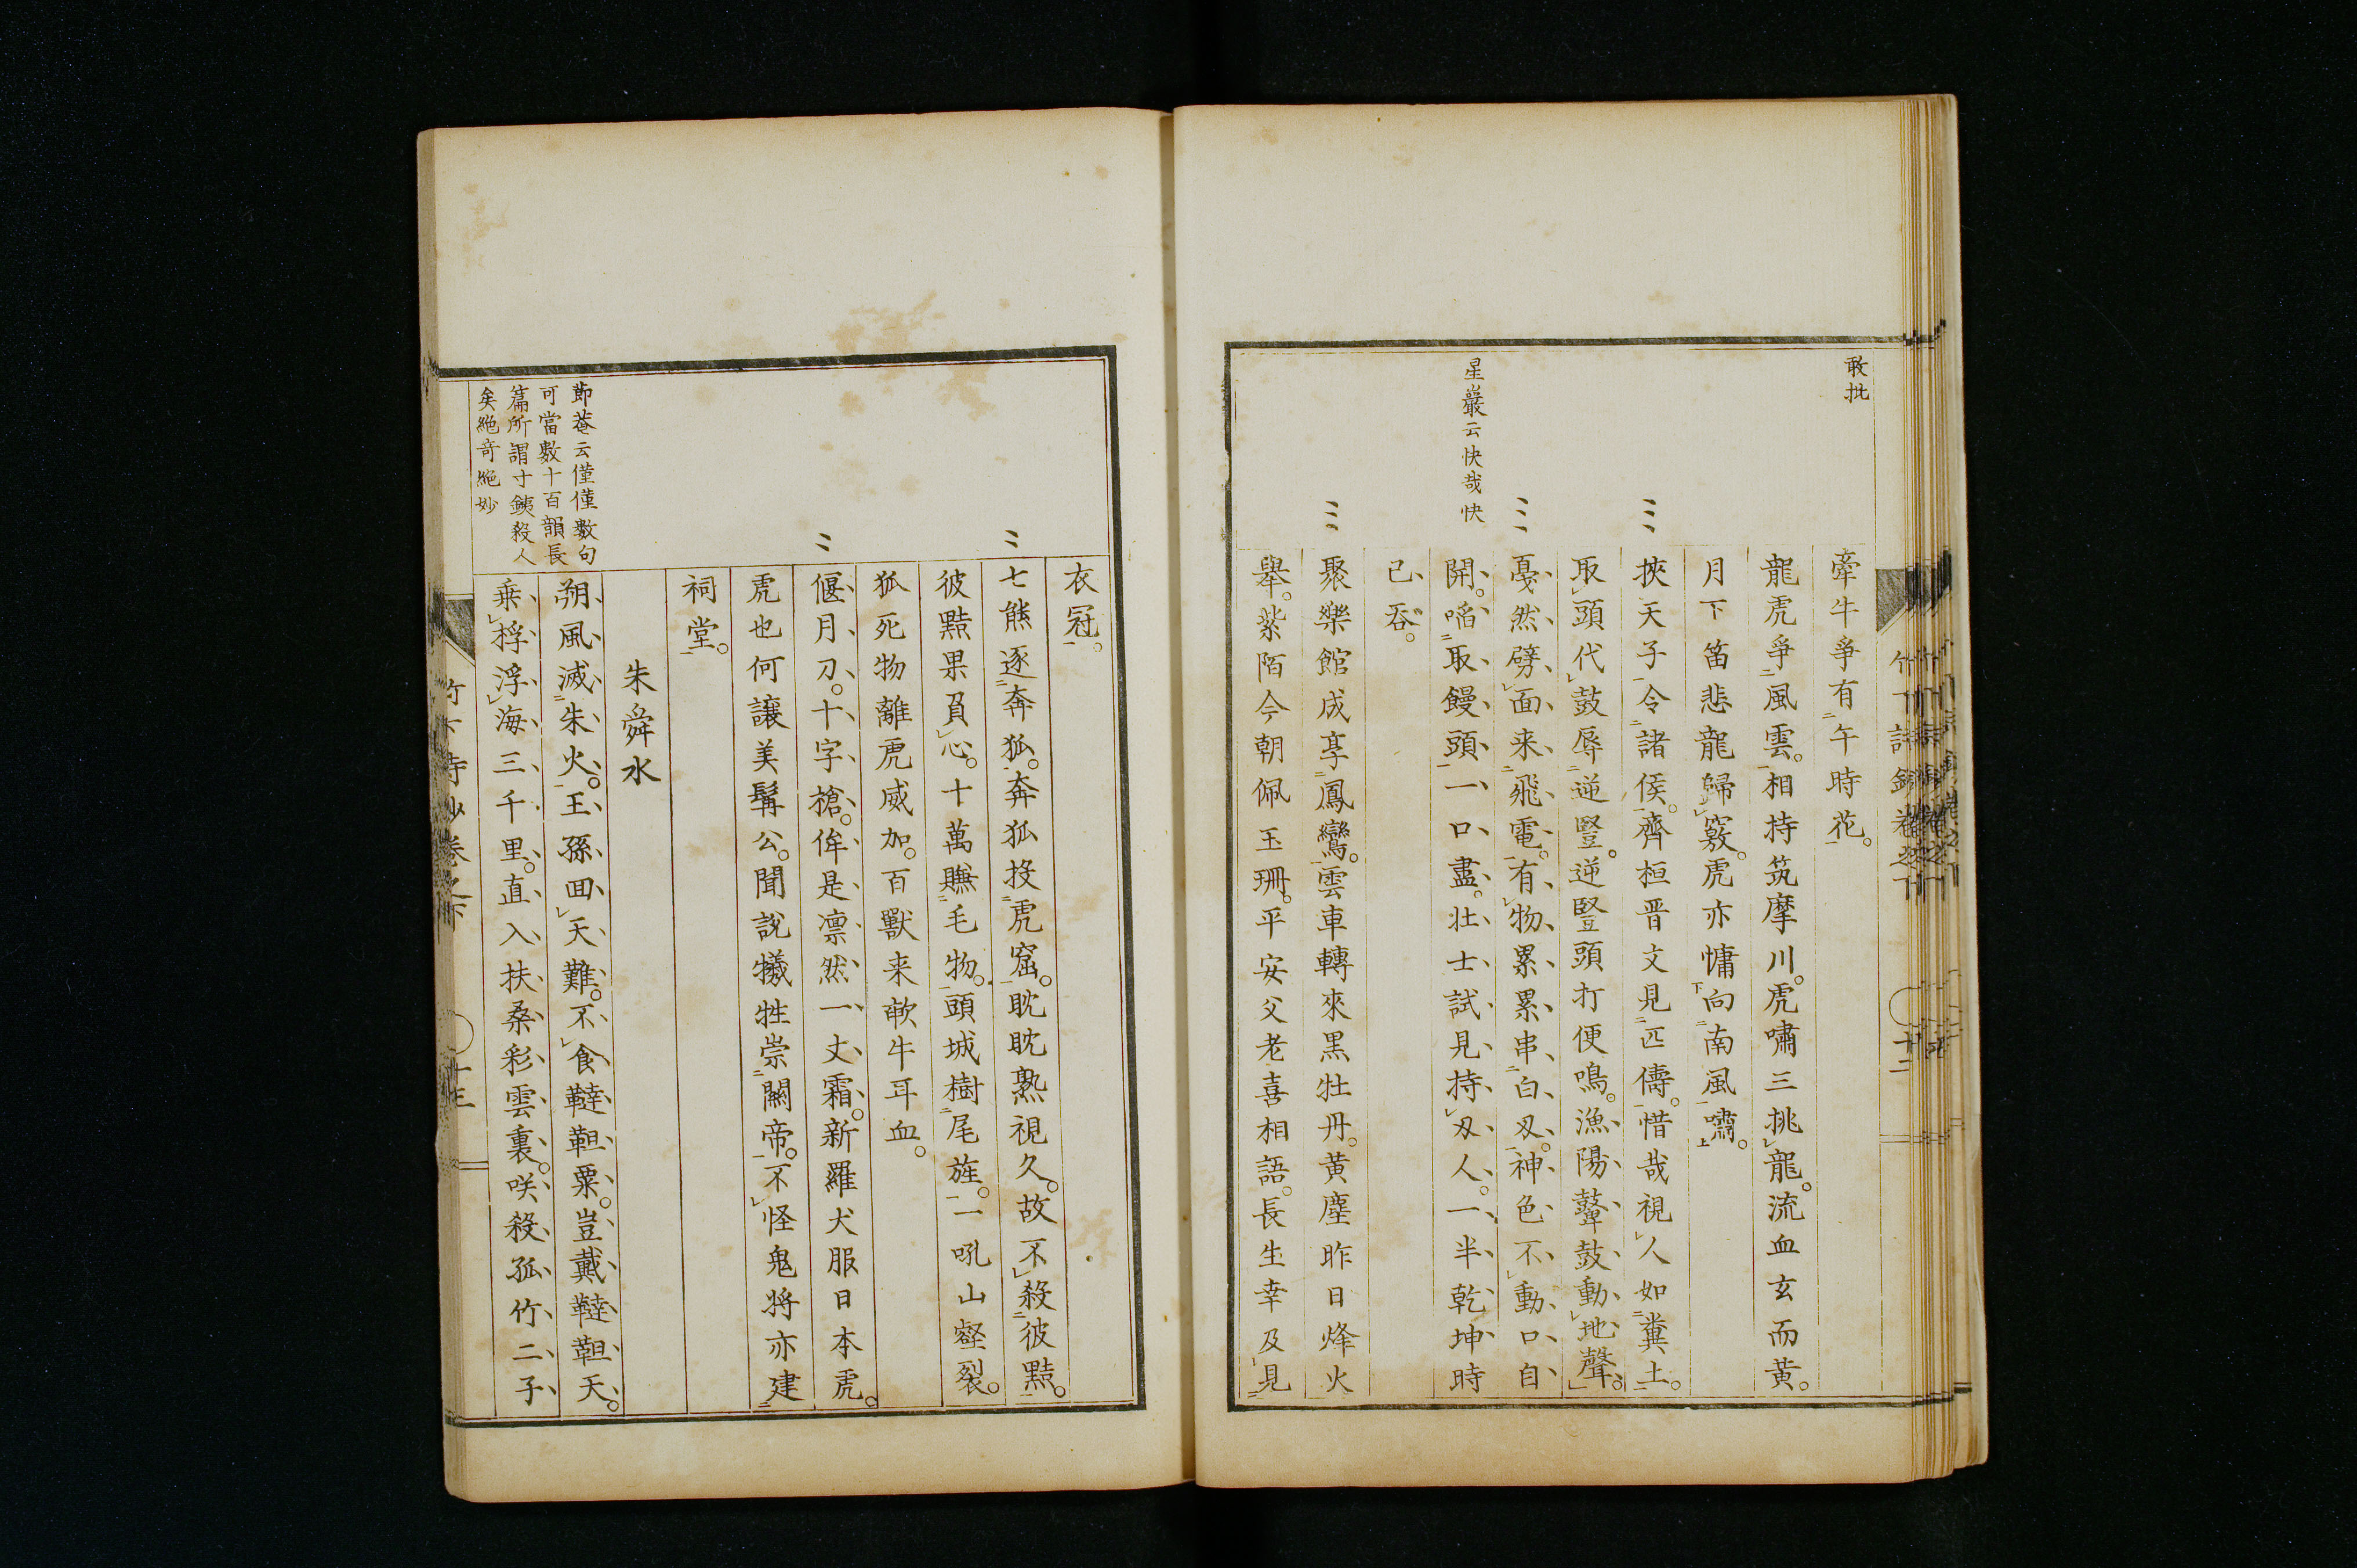 敢批
牽牛爭有午時花。
龍虎爭風雲。相持筑摩川。虎嘯三挑龍。流血玄而黃。
月下笛悲龍歸窽。虎亦慵向南風嘯。
挾天子令諸侯。齊桓晋文見匹儔。惜哉視人如糞土。
取頭代鼓辱逆豎。逆豎頭打便鳴。漁陽鼙鼓動地聲。
星巖云快哉快
戞然劈面来飛電。有物累累串白刄。神色不動口自
開。啗取饅頭一口盡。壮士試見持刄人。一半乾坤時
已吞。
聚樂館成享鳳鸞。雲車轉來黒牡丹。黄塵昨日烽火
舉。紫陌今朝佩玉珊。平安父老喜相語。長生幸及見
衣冠。
七熊逐奔狐。奔狐投虎窟。耽耽熟視久。故不殺彼黠。
彼黠果負心。十萬賺毛物。頭城樹尾旌。一吼山壑裂。
狐死物離虎威加。百獸来歃牛耳血。
偃月刀。十字槍。侔是凛然一丈霜。新羅犬服日本虎。
虎也何讓美髯公。聞說犧牲崇關帝。不怪鬼將亦建
祠堂。
朱舜水
節菴云僅僅數句
可當數十百韻長
篇所謂寸鉄殺人
矣絶奇絶妙
朔風滅朱火。王孫回天難。不食韃靼粟。豈戴韃靼天。
乗桴浮海三千里。直入扶桑彩雲裏。咲殺孤竹二子